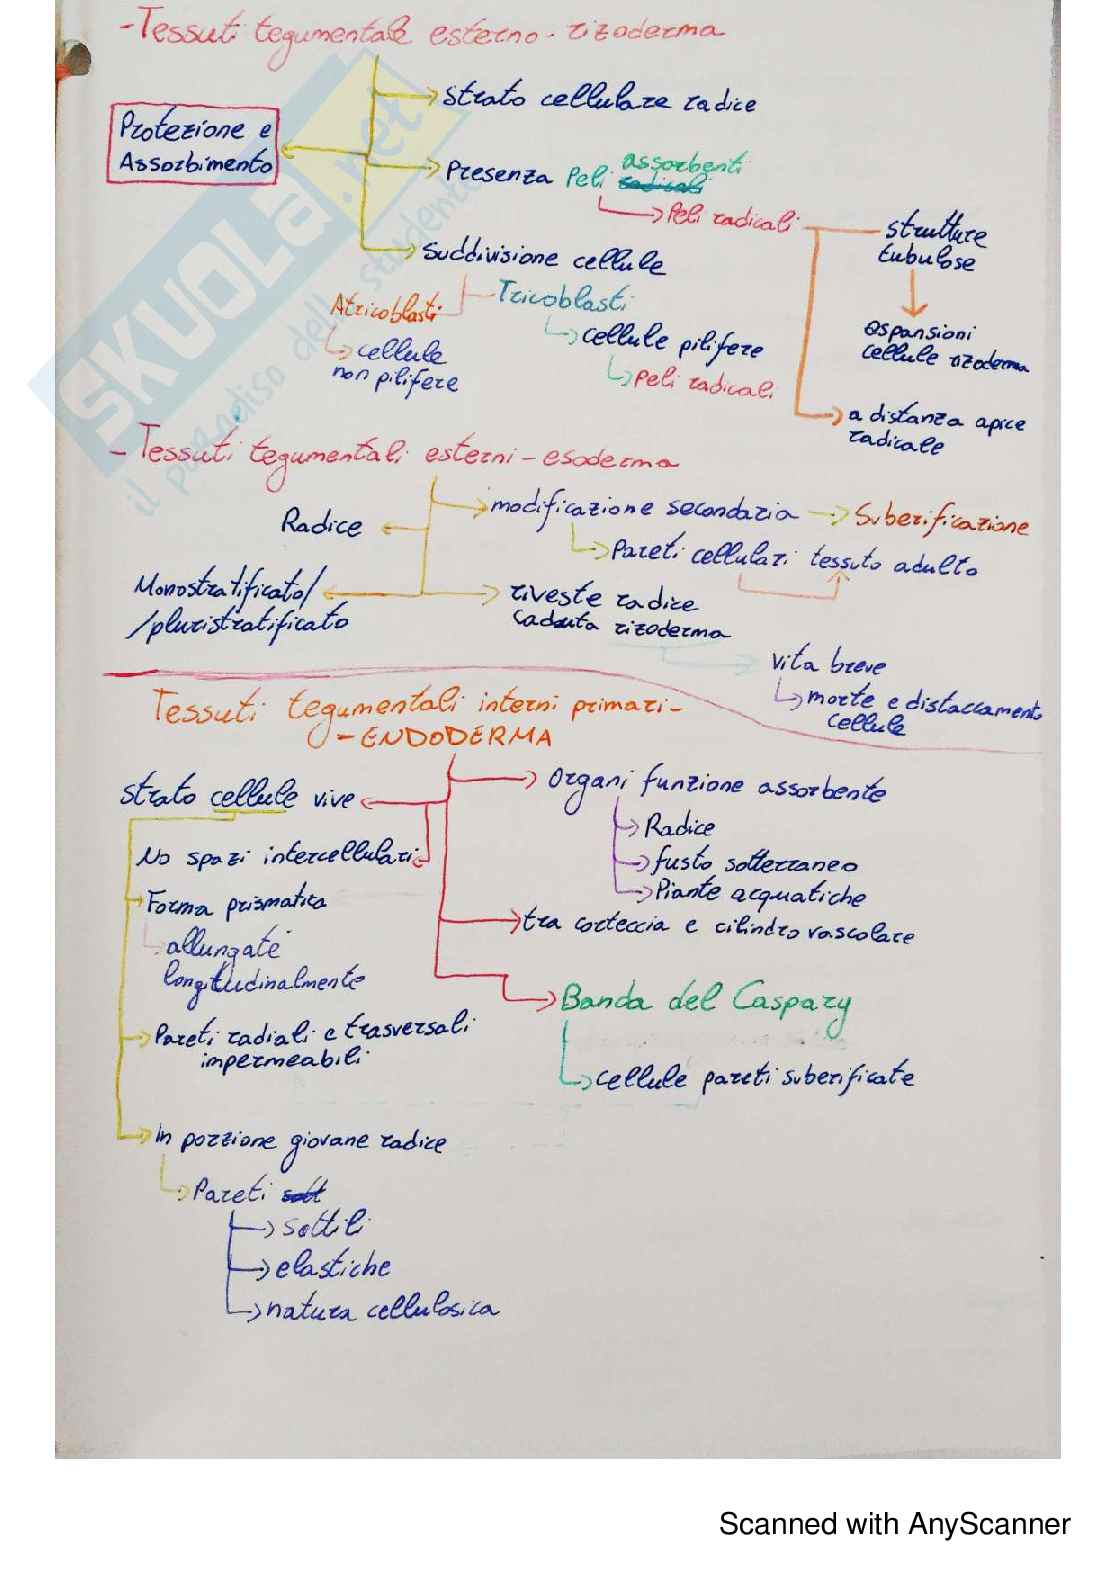 -Tessuti tegumentale esterno - rizoderma
Strato cellulare radice
Protezione e
Assorbimento
assorbenti
Presenza Peli radicali
Peli radicali
strutture
tubulose
Suddivisione cellule
Atricoblasti
Tricoblasti
cellule
non pilifere
cellule pilifere
Peli radicali
espansioni
cellule rizoderma
a distanza apice
radicale
- Tessuti tegumentali esterni - esoderma
Radice
modificazione secondaria
Suberificazione
Pareti cellulari tessuto adulto
Monostratificato/
/pluristratificato
riveste radice
caduta rizoderma
vita breve
morte e distaccamento
cellule
Tessuti tegumentali interni primari -
- ENDODERMA
strato cellule vive
Organi funzione assorbente
Radice
No spazi intercellulari
fusto sotterraneo
Forma prismatica
Piante acquatiche
allungate
longitudinalmente
tra corteccia e cilindro vascolare
Banda del Caspary
Pareti radiali e trasversali
impermeabili
cellule pareti suberificate
in porzione giovane radice
Pareti sott
sottili
elastiche
natura cellulosica
SKUOLA.net
il paradiso dello studente
Scanned with AnyScanner